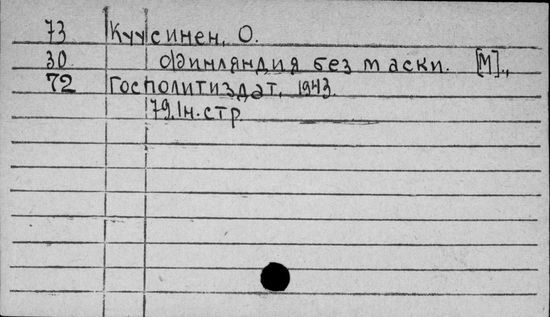 73 Куусинен, О.
30 Финляндия без маски. [М].,
72 Госполитиздат, 1943.
79,1н.стр.